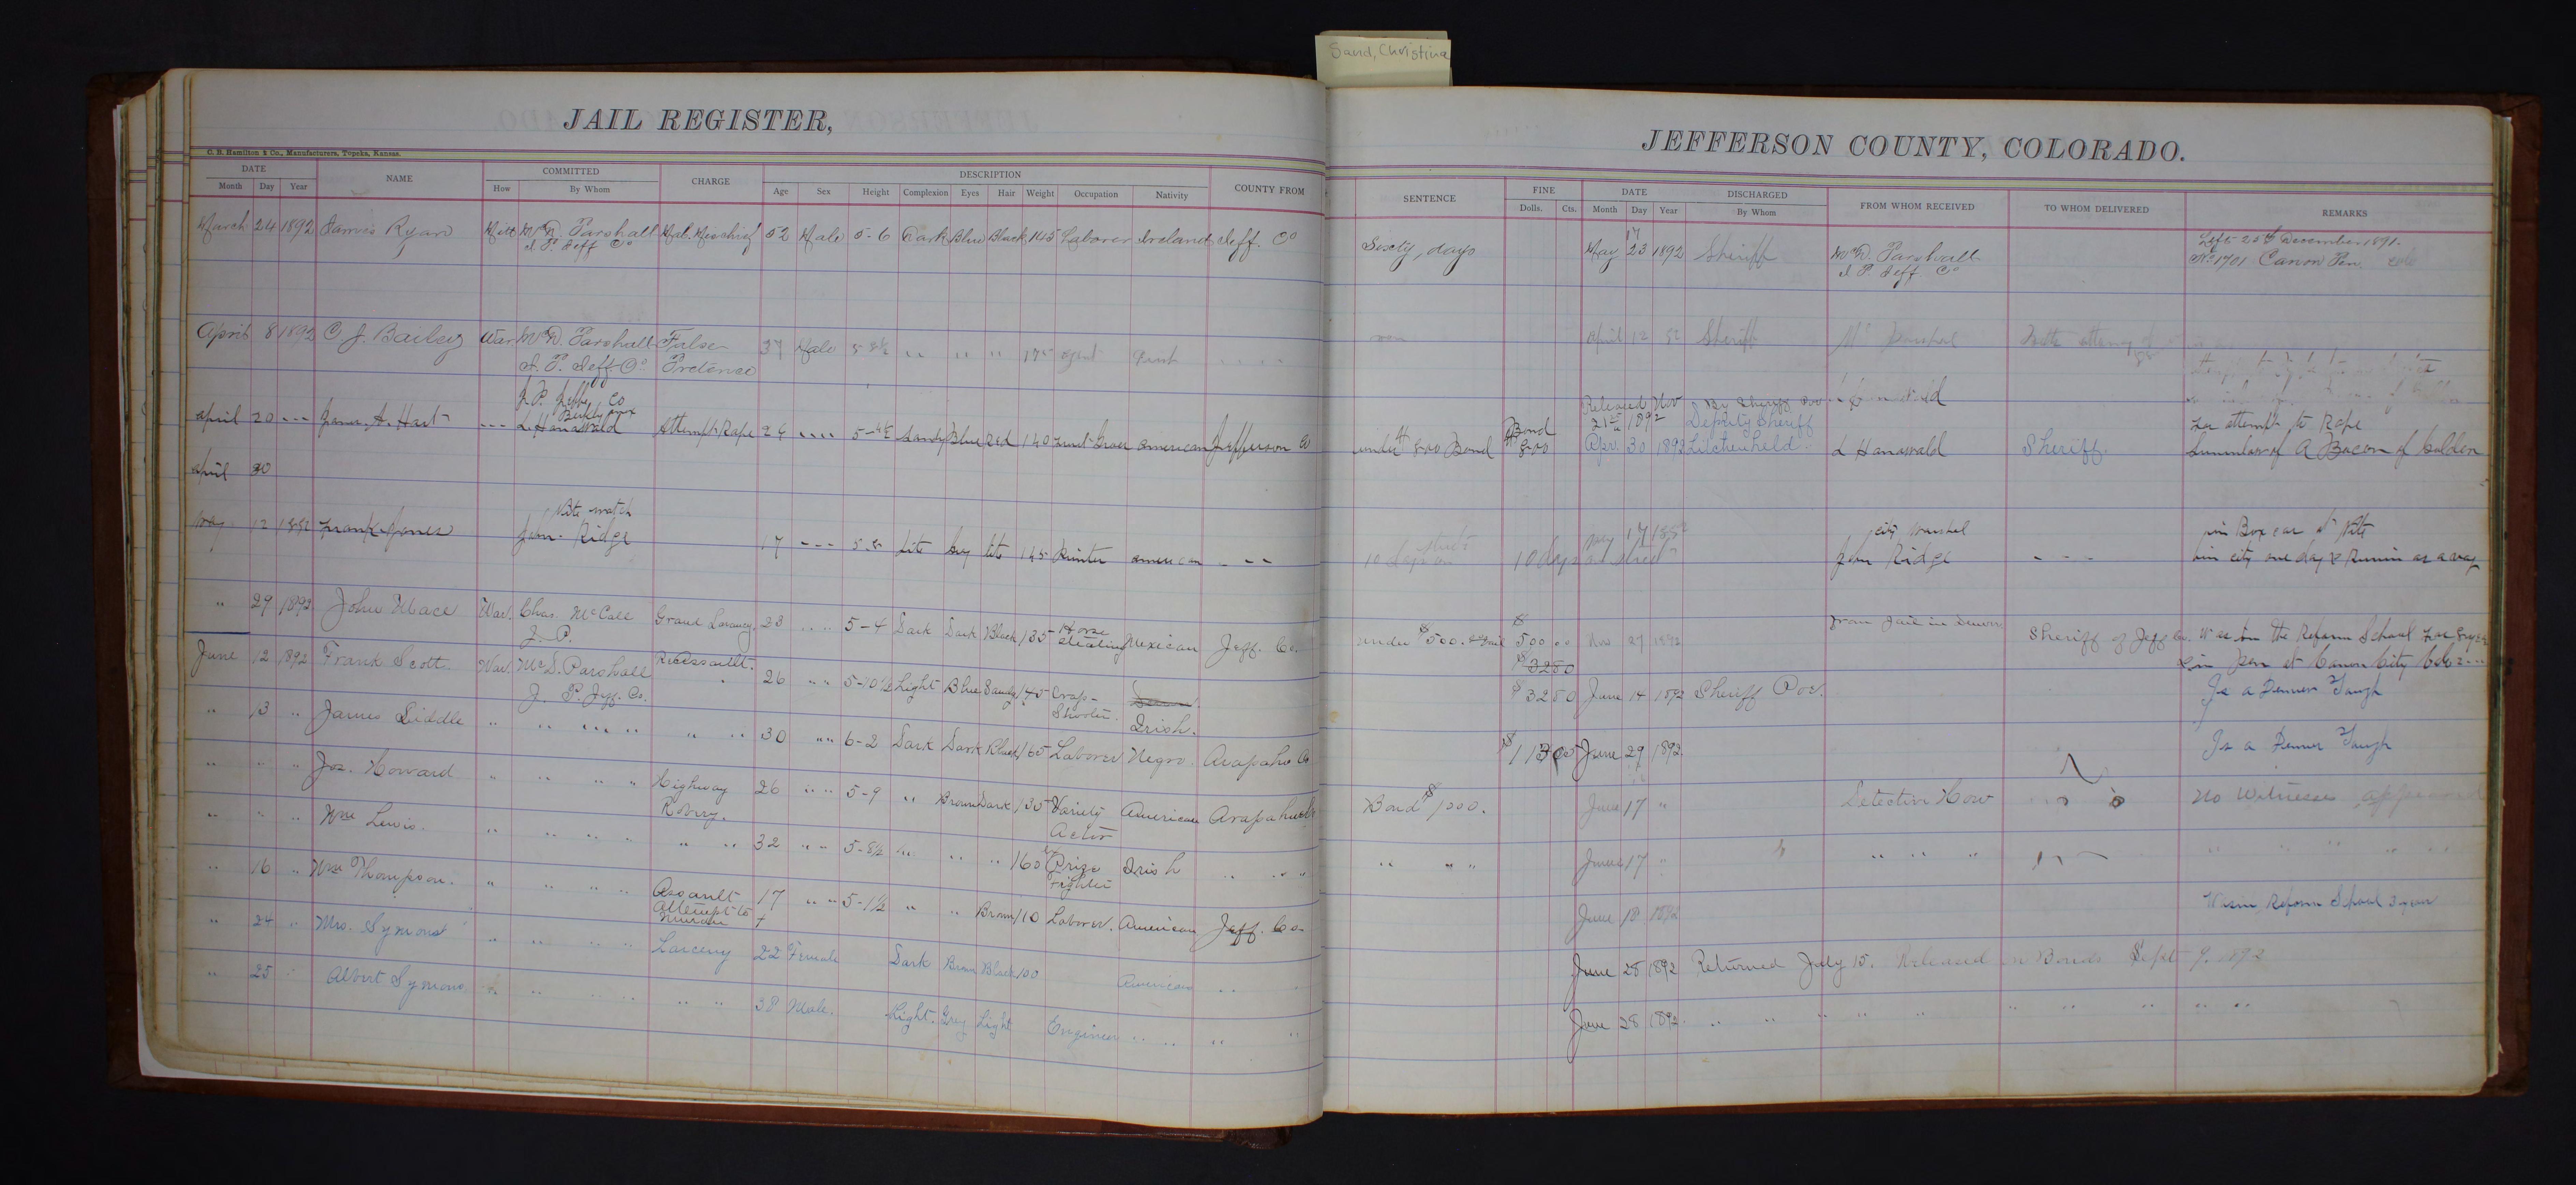 Sand, Christina
JAIL REGISTER,
C. B. Hamilton & Co., Manufacturers, Topeka, Kansas.
DATE NAME COMMITTED CHARGE DESCRIPTION COUNTY FROM
Month Day Year How By Whom Age Sex Height Complexion Eyes Hair Weight Occupation Nativity
March 24 1892 James Ryan Mitt McD. Parshall Mal. Mischief 52 Male 5-6 Dark Blue Black 145 Laborer Ireland Jeff. Co
J P Jeff Co
April 8 1892 C J. Bailey War McD. Parshall False 37 Male 5 8½ " " " 175 agent
J. P. Jeff Co. Pretence
J. P. Jeffe Co
april 20 --- James A. Hart --- L. Hanawald Attempt Rape 24 ---- 5-4½ Sandy Blue Red 140 american Jefferson Co
april 30
Nite watch
May 12 1892 Frank Jones John Ridge 17 --- 5.8 Lite Lite 145 american ---
" 29 1892 John Mace War. Chas. McCall Grand Larceny. 23 " " 5-4 Dark Dark Black 135 Horse Stealing Mexican Jeff. Co.
J. P.
June 12 1892 Frank Scott War. McD. Parshall Assault. 26 " " 5-10½ Light Blue Sandy 145 Crap-Shooter. Irish.
J. P. Jeff. Co.
" 13 " James Liddle " " " " " " " 30 " " 6-2 Dark Dark Black 165 Laborer Negro. Arapaho Co
" " " Jos. Howard " " " " Highway Robery. 26 " " 5-9 " Brown Dark 130 Variety Actor American Arapahoe
" " " Wm Lewis. " " " " " " 32 " " 5-8½ " " " 160 Prize Fighter Irish " " "
" 16 " Wm Thompson. " " " " Assault Attempt to 17 " " 5-1½ " " Brown 110 Laborer. American Jeff. Co.
" 24 " Mrs. Symons " " " " Larceny 22 Female Dark Brown Black 100 American " "
" 25 " Albert Symons " " " " " " 38 Male. Light. Grey Light Engineer " " " "
JEFFERSON COUNTY, COLORADO.
SENTENCE FINE DATE DISCHARGED FROM WHOM RECEIVED TO WHOM DELIVERED REMARKS
Dolls. Cts. Month Day Year By Whom
17
Sixty, days May 23 1892 Sheriff McD. Parshall Left 25th December 1891.
J P. Jeff Co No 1701 Canon Pen.
April 12 92 Sheriff
Released Nov By Sheriff
21st 1892 Deputy Sheriff For attempt to Rape
under $800 Bond Bond $800 Apr. 30 1892 Litchenheld L Hanawald Sheriff. of A Bacon of Golden
city Marshal in Box car at Nite
10 days on street 10 days on street May 17 1892 John Ridge --- in city one day
From Jail in Denver
under $500. $500 00 Nov 27 1892 Sheriff of Jeff Co. Was in the Reform School
$3280 in Pen at Canon City Colo
$3280 June 14 1892 Sheriff Is a Denver Tough
$113 00 June 29 1892 Is a Denver Tough
Bond $1000. June 17 " Detective How No Witnesses appeared
" " " June 17 " " " " " " " "
June 18 1892 Was in Reform School 3 years
June 28 1892 Returned July 15. Released on Bonds Sept 9. 1892
June 28 1892. " " " " " " " " " "